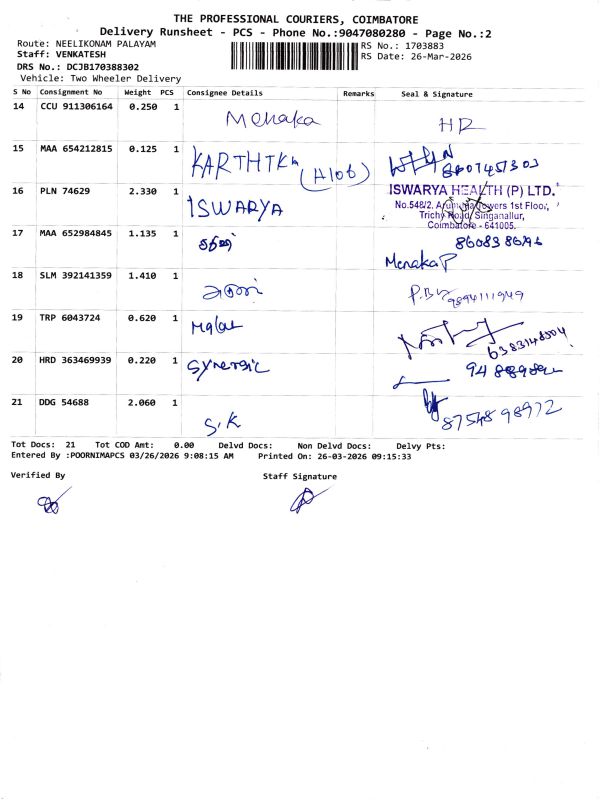 THE PROFESSIONAL COURIERS, COIMBATORE
Delivery Runsheet - PCS - Phone No.:9047080280 - Page No.:2
Route: NEELIKONAM PALAYAM
Staff: VENKATESH
DRS No.: DCJB170388302
Vehicle: Two Wheeler Delivery
RS No.: 1703883
RS Date: 26-Mar-2026
S No Consignment No Weight PCS Consignee Details Remarks Seal & Signature
14 CCU 911306164 0.250 1 Menaka HR
15 MAA 654212815 0.125 1 KARTHIK (A106)
16 PLN 74629 2.330 1 ISWARYA
ISWARYA HEALTH (P) LTD.
No.548/2, Arumuga Towers 1st Floor,
Trichy Road, Singanallur,
Coimbatore - 641005.
17 MAA 652984845 1.135 1
Menaka P
18 SLM 392141359 1.410 1 9894111949
19 TRP 6043724 0.620 1 6383148504
20 HRD 363469939 0.220 1 Synergic
21 DDG 54688 2.060 1 S.K 8754898972
Tot Docs: 21 Tot COD Amt: 0.00 Delvd Docs: Non Delvd Docs: Delvy Pts:
Entered By :POORNIMAPCS 03/26/2026 9:08:15 AM Printed On: 26-03-2026 09:15:33
Verified By Staff Signature